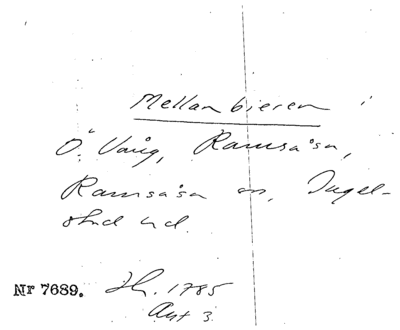 Mellanbieren
Ö. Vång, Ramsåsa,
Ramsåsa sn, Ingel-
stad hd.
Nr 7689. Sk. 1785
Akt 3